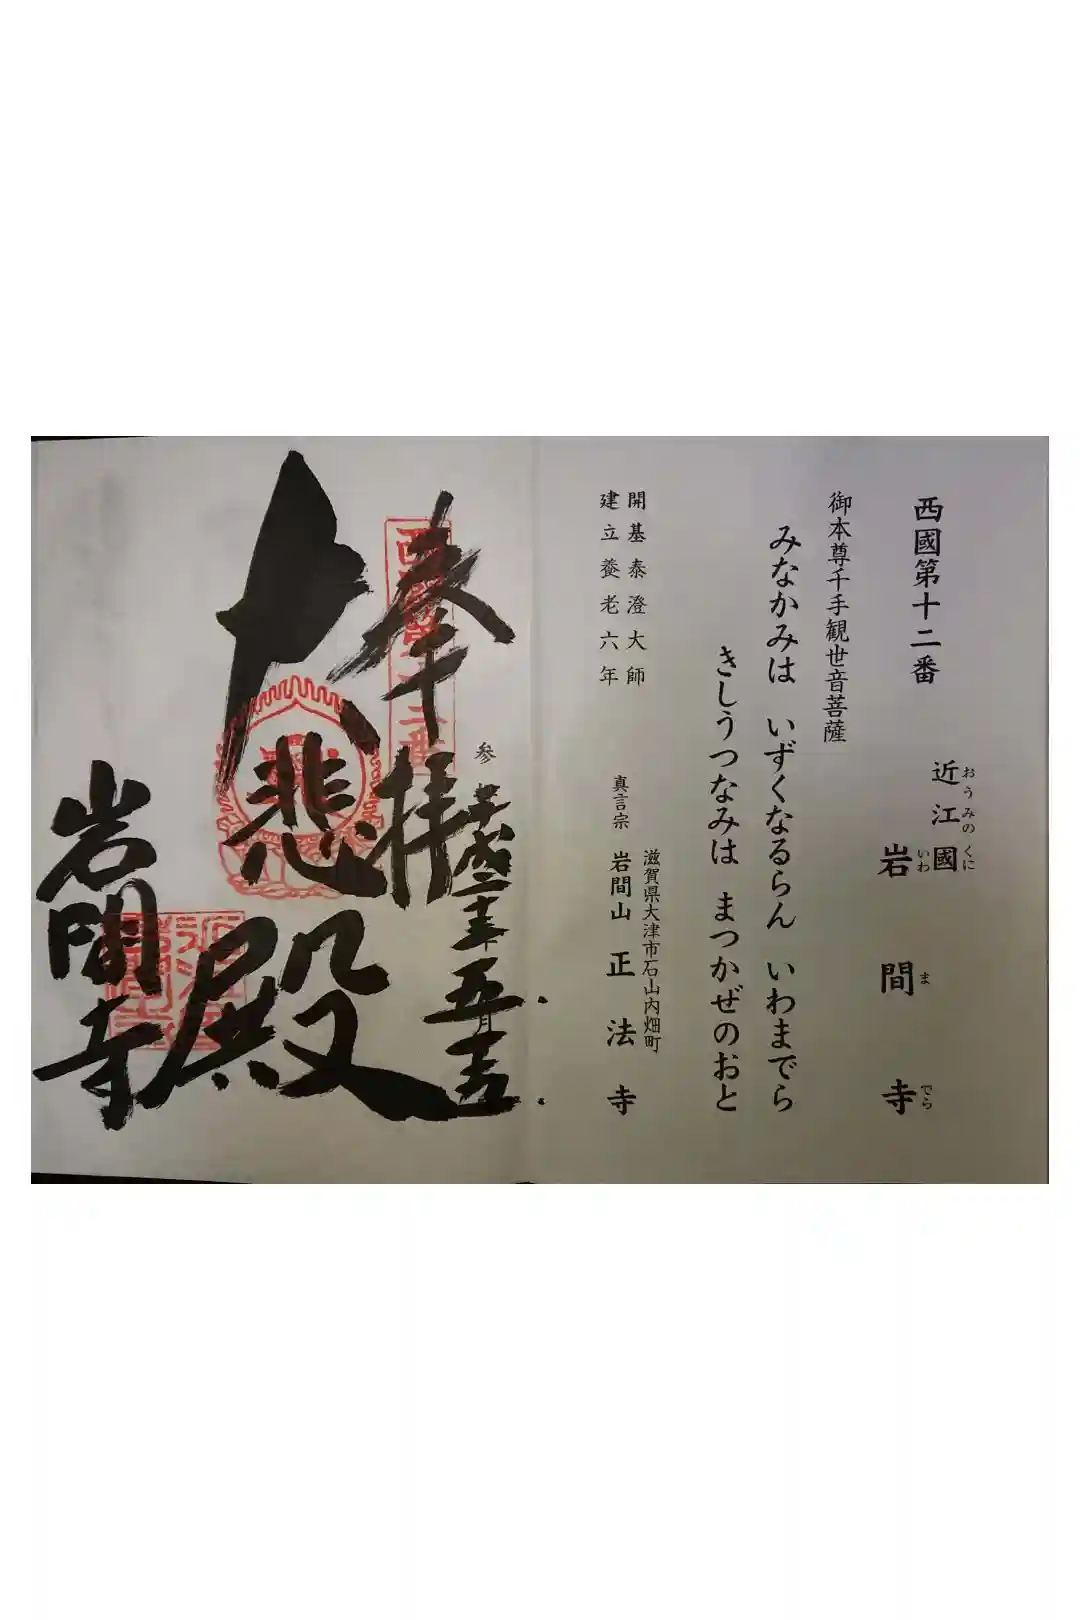 西國第十二番
近江國
おうみのくに
岩間寺
いわまでら
御本尊千手観世音菩薩
みなかみは いずくなるらん いわまでら
きしうつなみは まつかぜのおと
開基泰澄大師
建立養老六年
滋賀県大津市石山内畑町
真言宗 岩間山 正法寺
奉拝
大悲殿
岩間寺